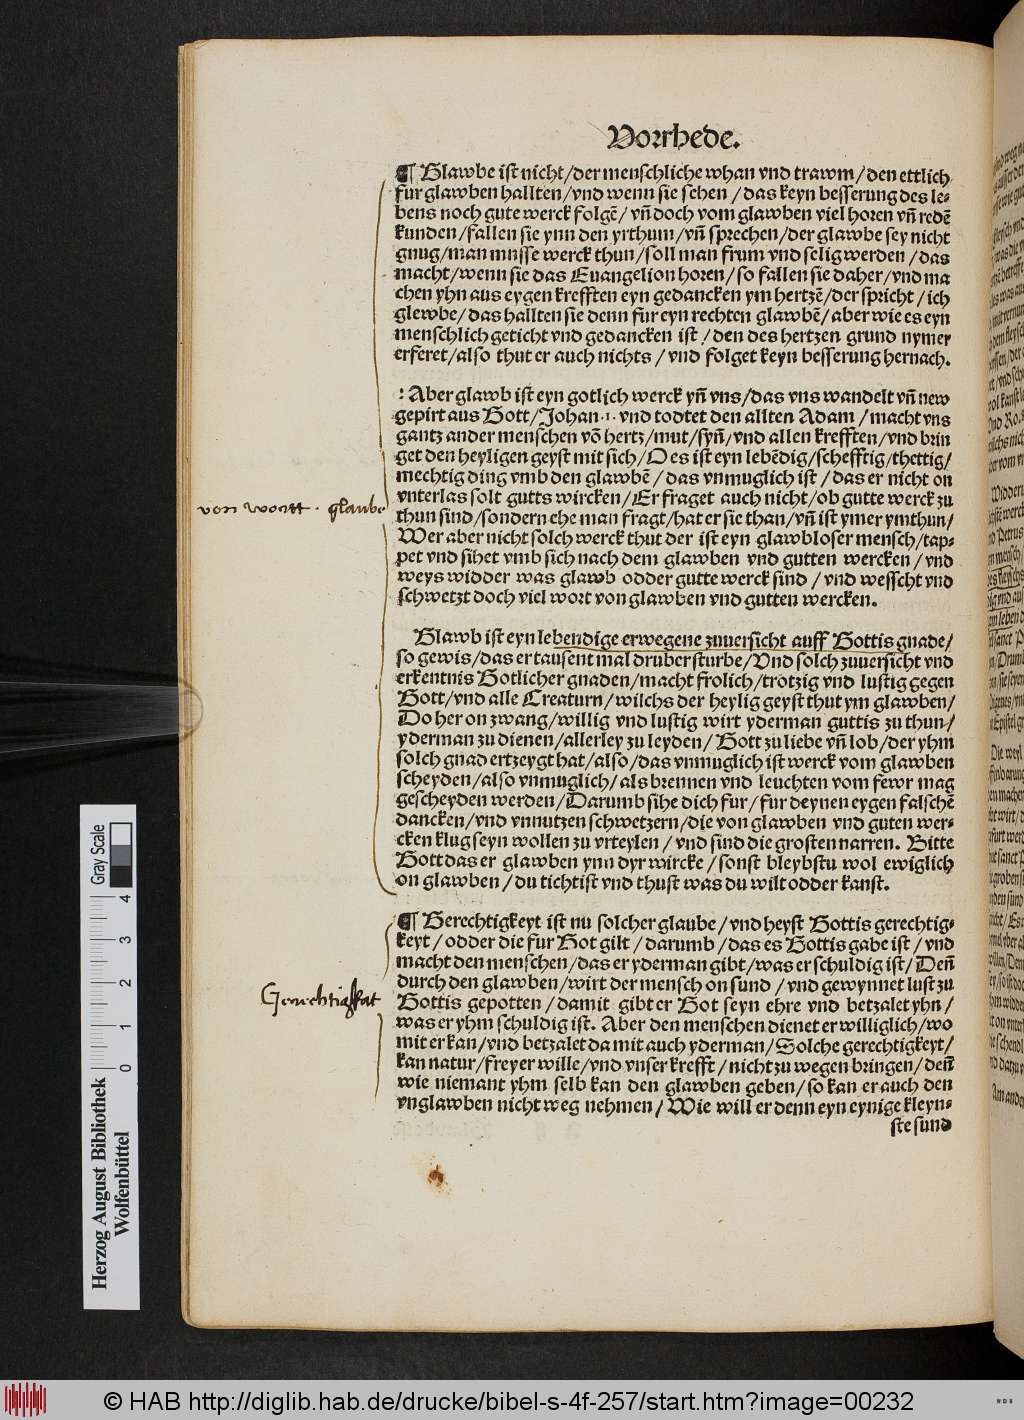 Vorrhede.
¶ Glawbe ist nicht/der menschliche whan vnd trawm/den ettlich
fur glawben hallten/vnd wenn sie sehen/das keyn besserung des le-
bens noch gute werck folgẽ/vñ doch vom glawben viel horen vñ redẽ
kunden/fallen sie ynn den yrthum/vñ sprechen/der glawbe sey nicht
gnug/man musse werck thun/soll man frum vnd selig werden/das
macht/wenn sie das Euangelion horen/so fallen sie daher/vnd ma
chen yhn aus eygen krefften eyn gedancken ym hertzẽ/der spricht/ich
glewbe/das hallten sie denn fur eyn rechten glawbẽ/aber wie es eyn
menschlich geticht vnd gedancken ist/den des hertzen grund nymer
erferet/also thut er auch nichts/vnd folget keyn besserung hernach.
: Aber glawb ist eyn gotlich werck yñ vns/das vns wandelt vñ new
gepirt aus Gott/Johan.1. vnd todtet den allten Adam/macht vns
gantz ander menschen võ hertz/mut/syñ/vnd allen krefften/vnd brin
get den heyligen geyst mit sich/O es ist eyn lebẽdig/schefftig/thettig/
mechtig ding vmb den glawbẽ/das vnmuglich ist/das er nicht on
vnterlas solt gutts wircken/Er fraget auch nicht/ob gutte werck zu
thun sind/sondern ehe man fragt/hat er sie than/vñ ist ymer ym thun/
Wer aber nicht solch werck thut der ist eyn glawbloser mensch/tap-
pet vnd sihet vmb sich nach dem glawben vnd gutten wercken/vnd
weys widder was glawb odder gutte werck sind/vnd wesscht vnd
schwetzt doch viel wort von glawben vnd gutten wercken.
von wortt . glaube
Glawb ist eyn lebendige erwegene zuuersicht auff Gottis gnade/
so gewis/das er tausent mal druber sturbe/Vnd solch zuuersicht vnd
erkentnis Gotlicher gnaden/macht frolich/trotzig vnd lustig gegen
Gott/vnd alle Creaturn/wilchs der heylig geyst thut ym glawben/
Do her on zwang/willig vnd lustig wirt yderman guttis zu thun/
yderman zu dienen/allerley zu leyden/Gott zu liebe vñ lob/der yhm
solch gnad ertzeygt hat/also/das vnmuglich ist werck vom glawben
scheyden/also vnmuglich/als brennen vnd leuchten vom fewr mag
gescheyden werden/Darumb sihe dich fur/fur deynen eygen falschẽ
dancken/vnd vnnutzen schwetzern/die von glawben vnd guten wer-
cken klug seyn wollen zu vrteylen/vnd sind die grosten narren. Bitte
Gott das er glawben ynn dyr wircke/sonst bleybstu wol ewiglich
on glawben/du tichtist vnd thust was du wilt odder kanst.
¶ Gerechtigkeyt ist nu solcher glaube/vnd heyst Gottis gerechtig-
keyt/odder die fur Got gilt/darumb/das es Gottis gabe ist/vnd
macht den menschen/das er yderman gibt/was er schuldig ist/Deñ
durch den glawben/wirt der mensch on sund/vnd gewynnet lust zu
Gottis gepotten/damit gibt er Got seyn ehre vnd betzalet yhn/
was er yhm schuldig ist. Aber den menschen dienet er williglich/wo
mit er kan/vnd betzalet da mit auch yderman/Solche gerechtigkeyt/
kan natur/freyer wille/vnd vnser krefft/nicht zu wegen bringen/deñ
wie niemant yhm selb kan den glawben geben/so kan er auch den
vnglawben nicht weg nehmen/Wie will er denn eyn eynige kleyn-
ste sund
Gerechtigkat
Herzog August Bibliothek
Wolfenbüttel
Gray Scale
0 1 2 3 4
© HAB http://diglib.hab.de/drucke/bibel-s-4f-257/start.htm?image=00232